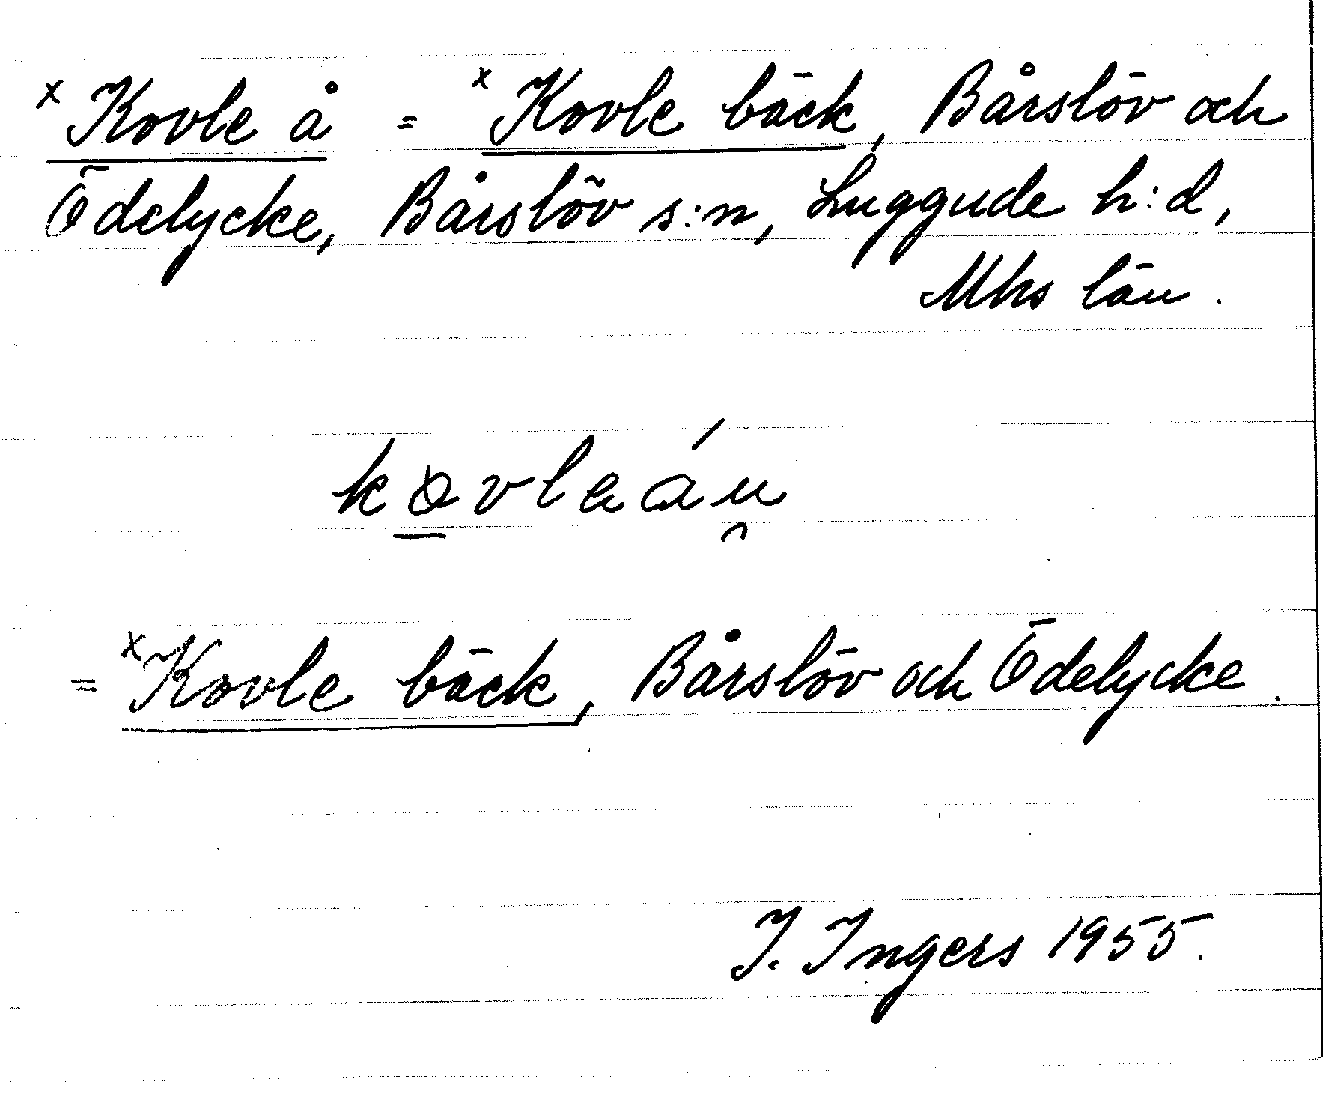 x Kovle å = x Kovle bäck, Bårslöv och
Ödelycke, Bårslöv s:n, Luggude h:d,
Mhs län.
kovleáu
= x Kovle bäck, Bårslöv och Ödelycke.
I. Ingers 1955.